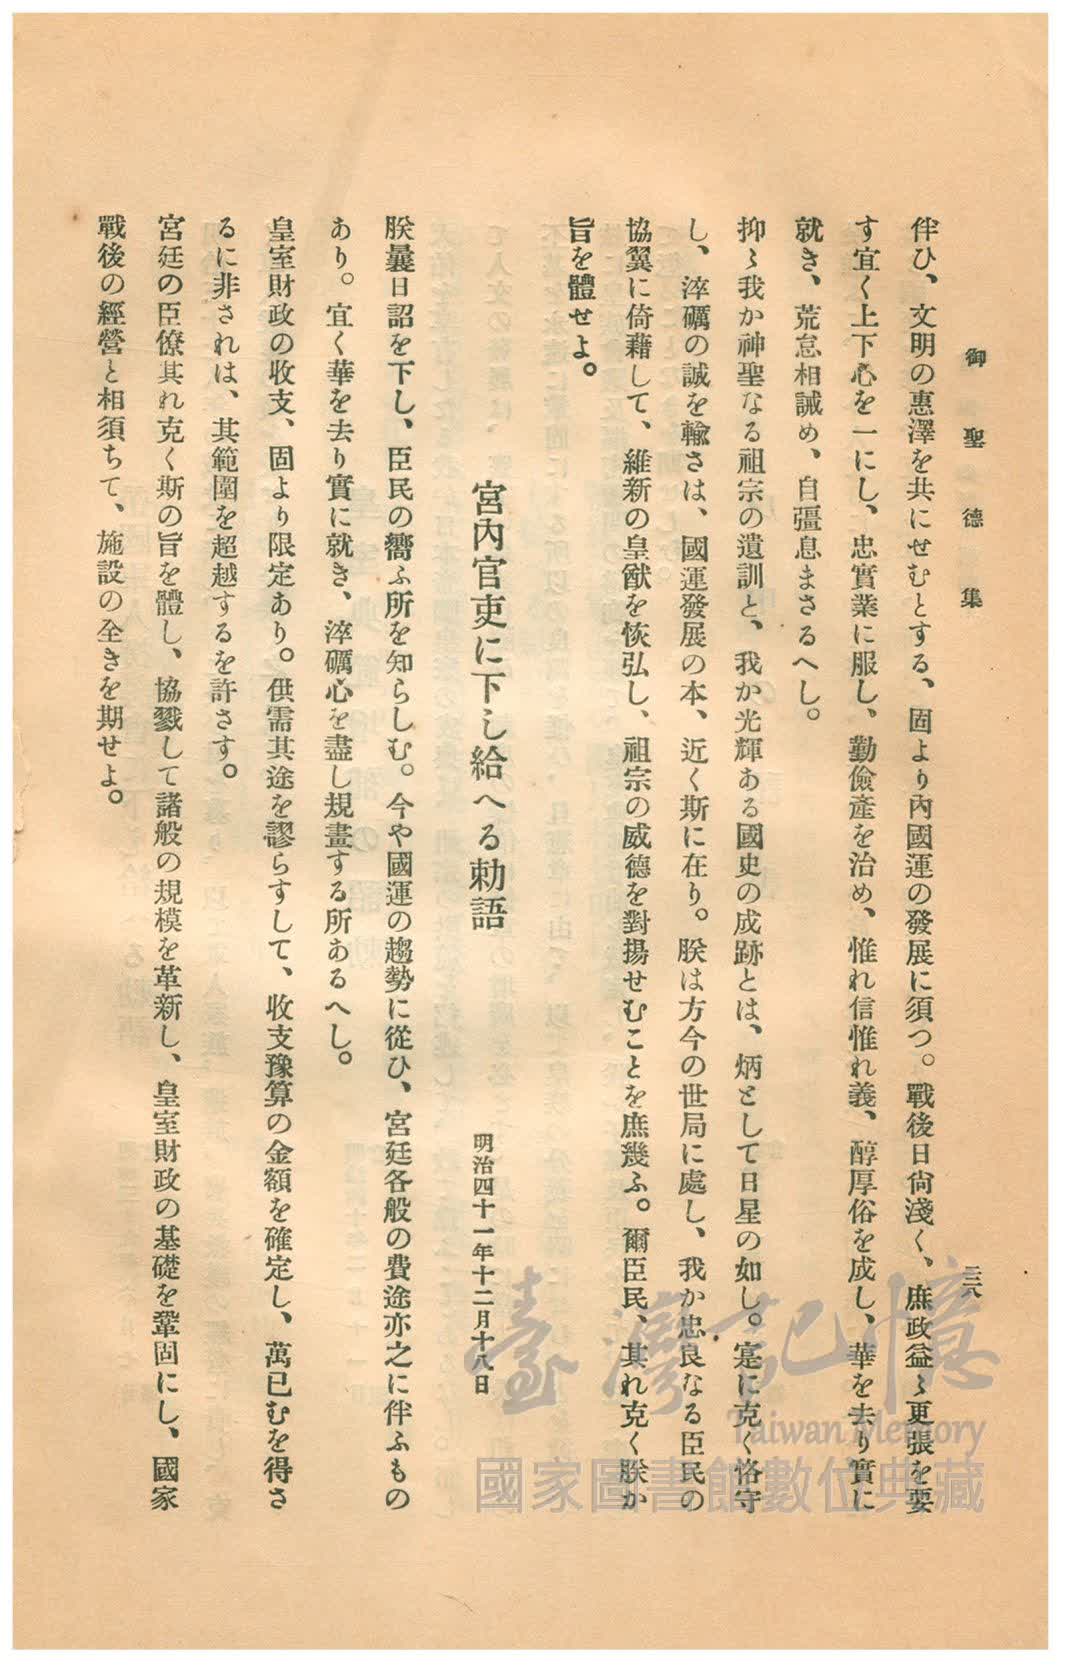 御聖德集
二三八
伴ひ、文明の惠澤を共にせむとする、固より內國運の發展に須つ。戰後日尙淺く、庶政益〻更張を要
す宜く上下心を一にし、忠實業に服し、勤儉產を治め、惟れ信惟れ義、醇厚俗を成し、華を去り實に
就き、荒怠相誡め、自彊息まさるへし。
抑〻我か神聖なる祖宗の遺訓と、我か光輝ある國史の成跡とは、炳として日星の如し。寔に克く恪守
し、淬礪の誠を輸さは、國運發展の本、近く斯に在り。朕は方今の世局に處し、我か忠良なる臣民の
協翼に倚藉して、維新の皇猷を恢弘し、祖宗の威德を對揚せむことを庶幾ふ。爾臣民、其れ克く朕か
旨を體せよ。
宮內官吏に下し給へる勅語
明治四十一年十二月十八日
朕曩日詔を下し、臣民の嚮ふ所を知らしむ。今や國運の趨勢に從ひ、宮廷各般の費途亦之に伴ふもの
あり。宜く華を去り實に就き、淬礪心を盡し規畫する所あるへし。
皇室財政の收支、固より限定あり。供需其途を謬らすして、收支豫算の金額を確定し、萬已むを得さ
るに非されは、其範圍を超越するを許さす。
宮廷の臣僚其れ克く斯の旨を體し、協戮して諸般の規模を革新し、皇室財政の基礎を鞏固にし、國家
戰後の經營と相須ちて、施設の全きを期せよ。
臺灣記憶
Taiwan Memory
國家圖書館數位典藏